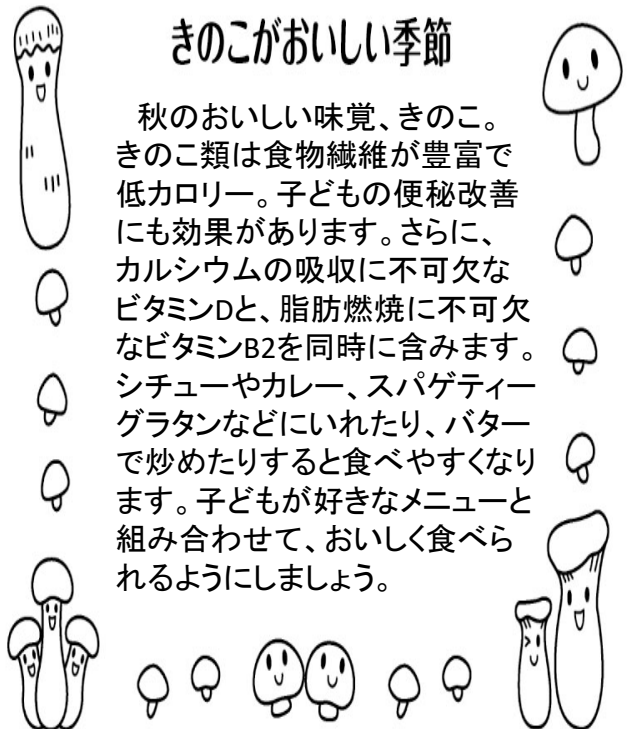 きのこがおいしい季節
秋のおいしい味覚、きのこ。
きのこ類は食物繊維が豊富で
低カロリー。子どもの便秘改善
にも効果があります。さらに、
カルシウムの吸収に不可欠な
ビタミンDと、脂肪燃焼に不可欠
なビタミンB2を同時に含みます。
シチューやカレー、スパゲティー
グラタンなどにいれたり、バター
で炒めたりすると食べやすくなり
ます。子どもが好きなメニューと
組み合わせて、おいしく食べら
れるようにしましょう。